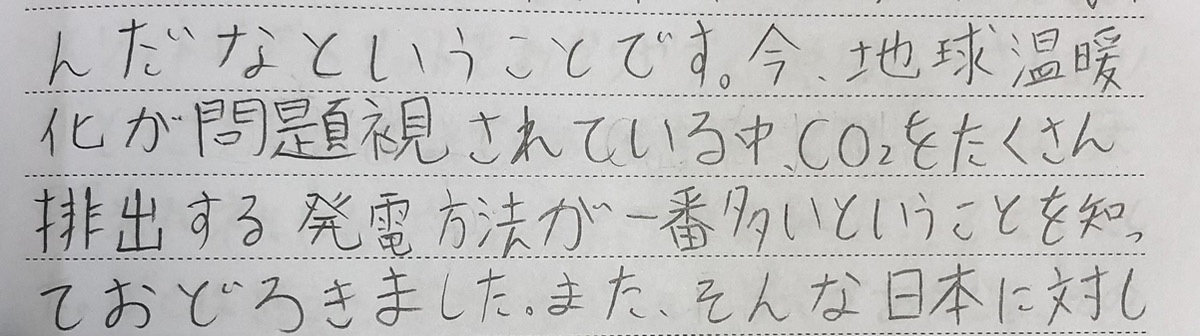 んだなということです。今、地球温暖
化が問題視されている中、CO₂をたくさん
排出する発電方法が一番多いということを知っ
ておどろきました。また、そんな日本に対し